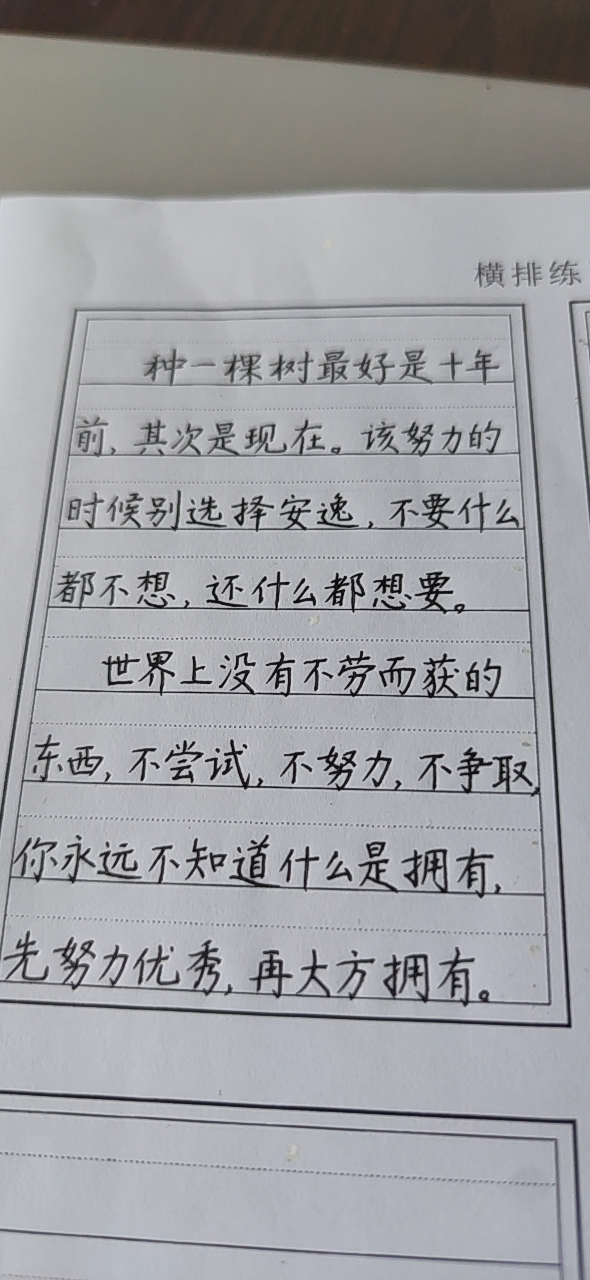 横排练
种一棵树最好是十年
前,其次是现在。该努力的
时候别选择安逸,不要什么
都不想,还什么都想要。
世界上没有不劳而获的
东西,不尝试,不努力,不争取,
你永远不知道什么是拥有,
先努力优秀,再大方拥有。